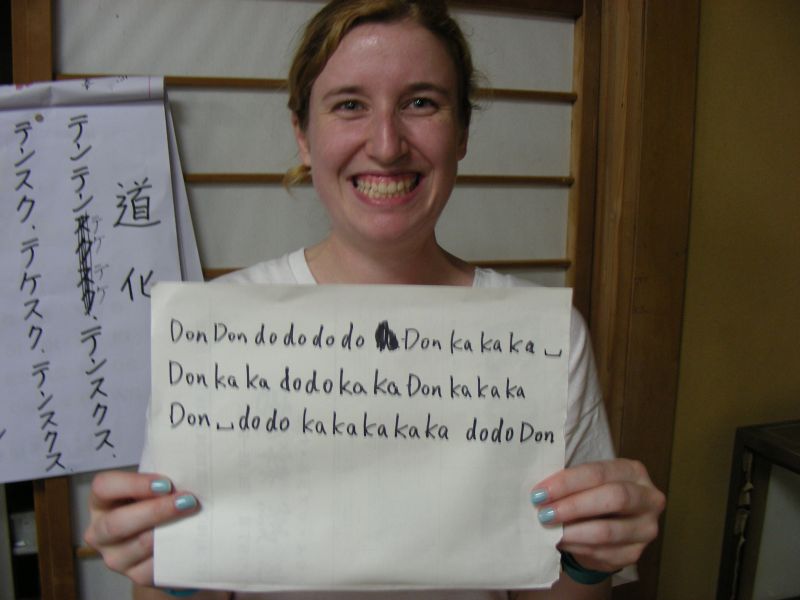 道化
テンテン、テンスクス、
テンスク、テケスク、テンスクス
Don Don do do do do Don ka ka ka ␣
Don ka ka do do ka ka Don ka ka ka
Don ␣ do do ka ka ka ka ka do do Don